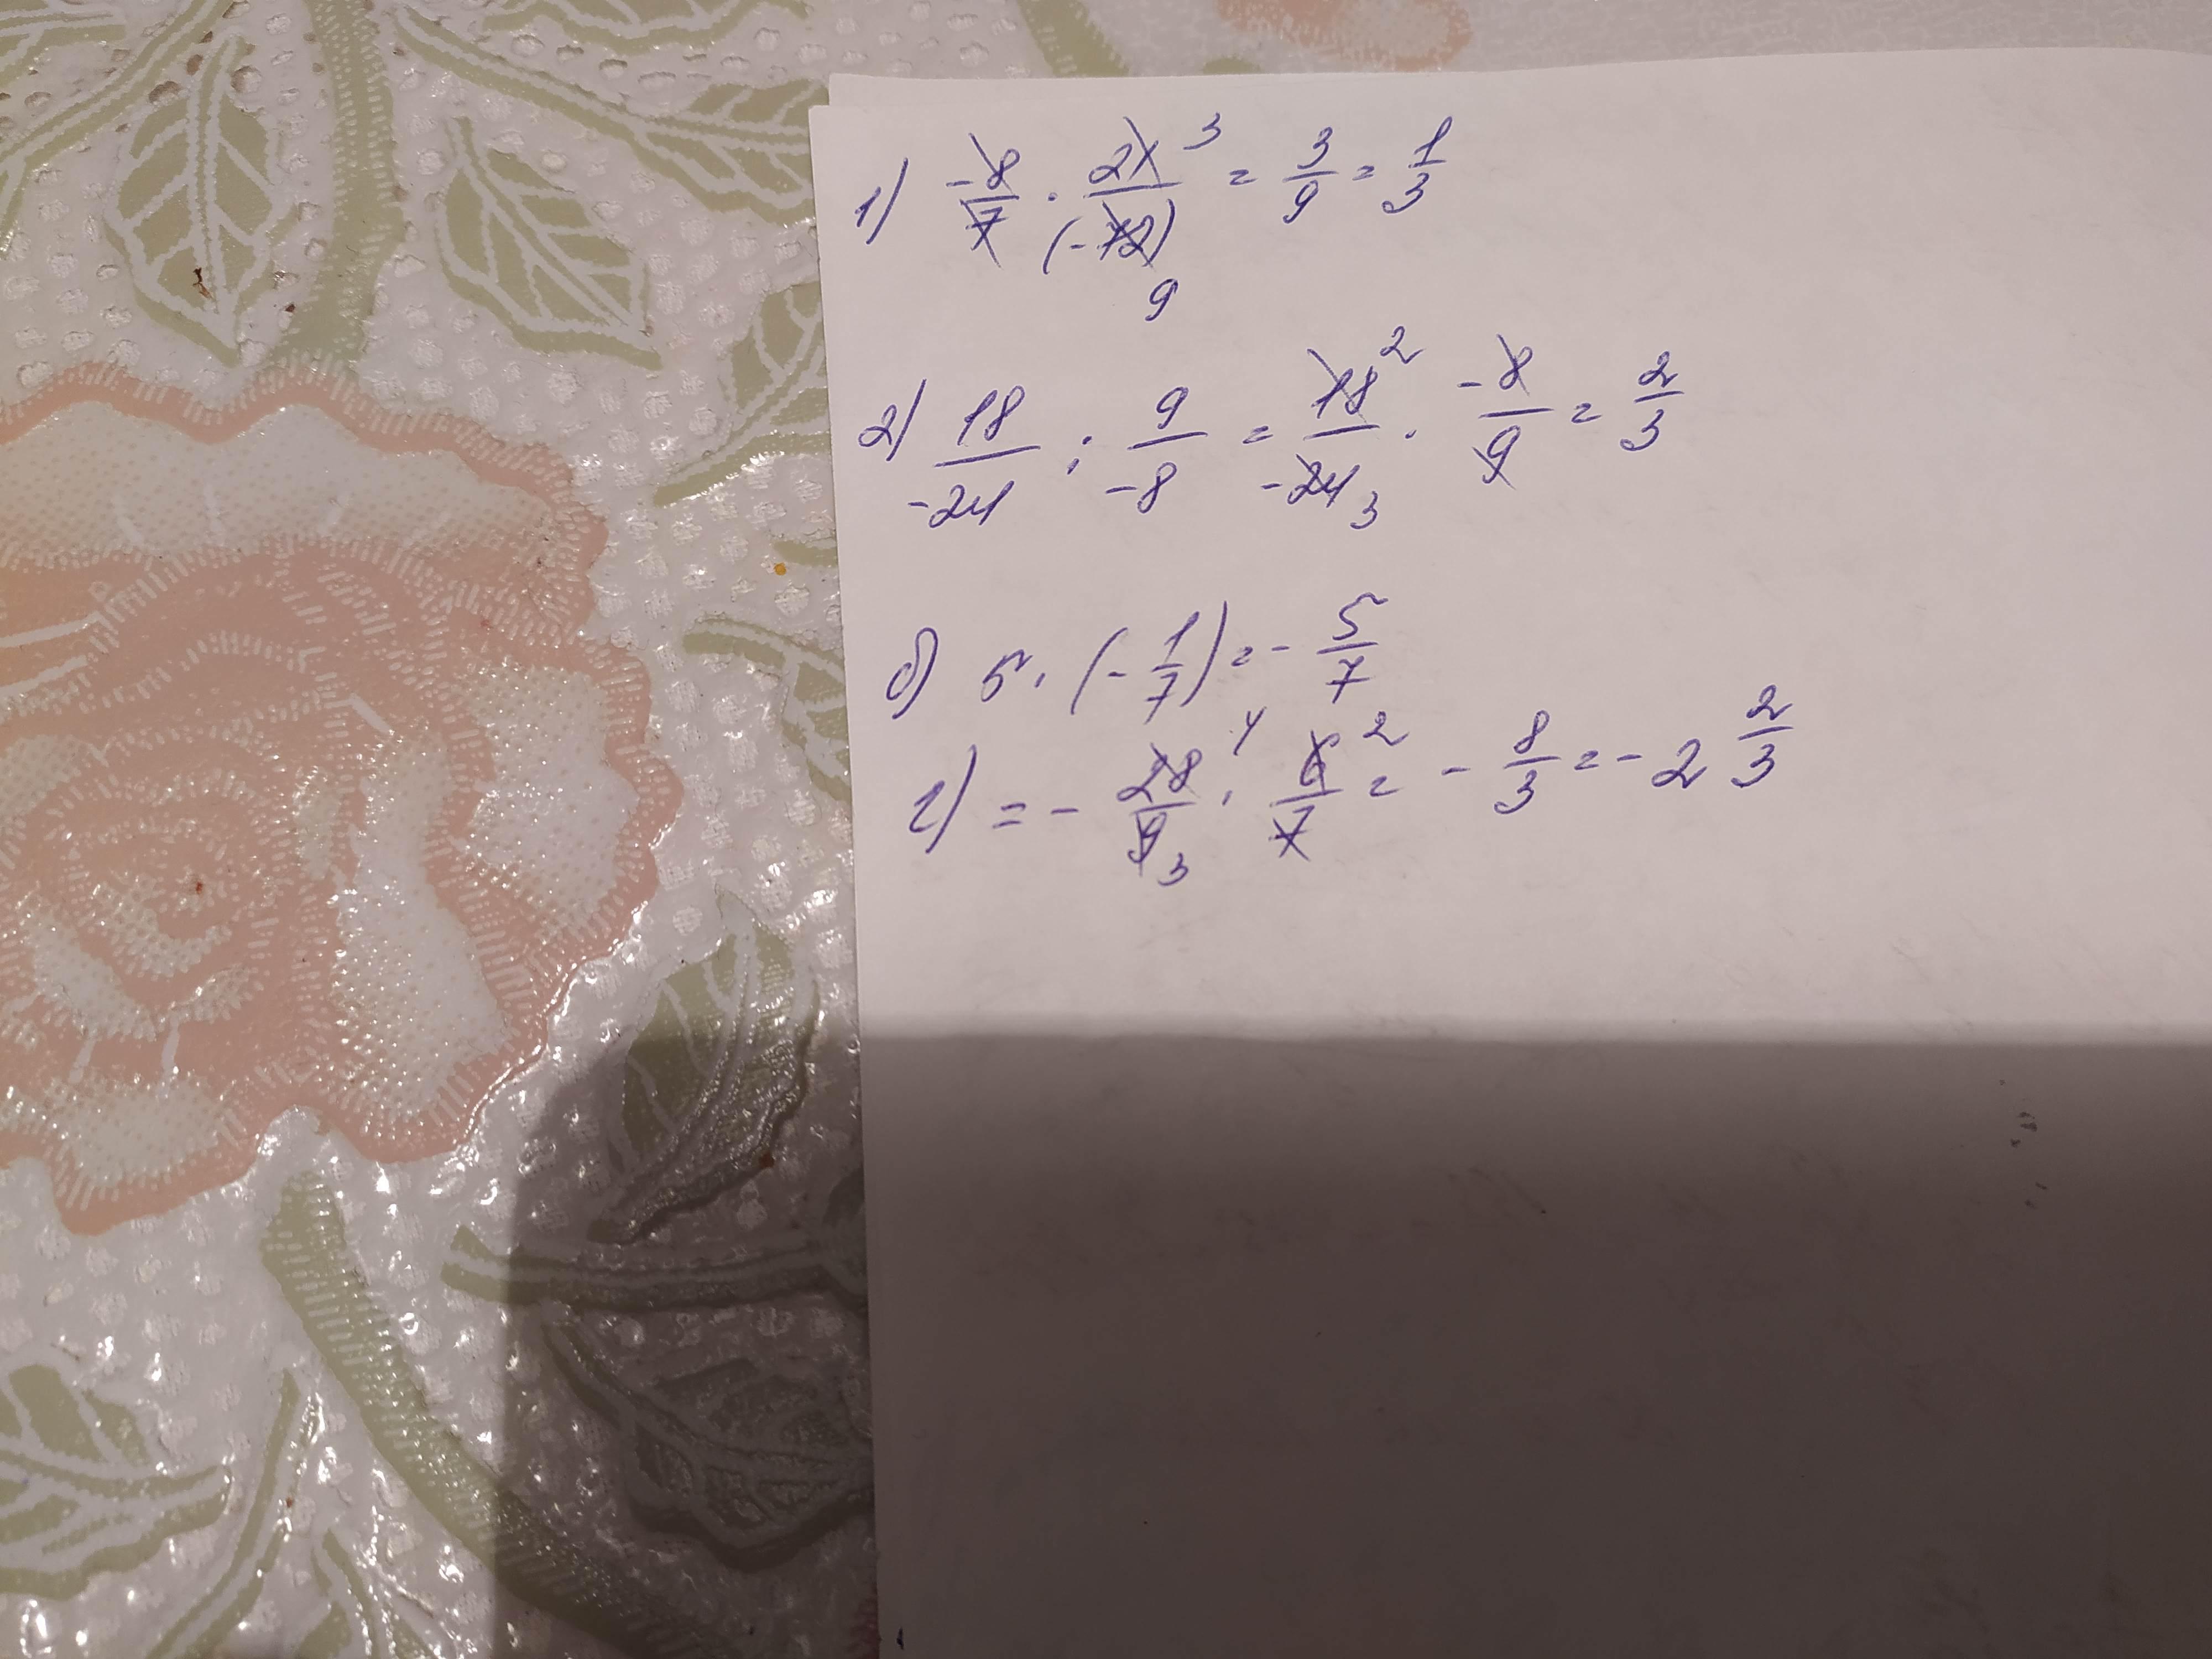 1) -8/7 · 21/(-72) 3 9 = 3/9 = 1/3
2) 18/-24 : 9/-8 = 18/-24 2 3 · -8/9 = 2/3
б) 5 · (-1/7) = - 5/7
г) = - 28/9 4 3 · 6/7 2 = - 8/3 = - 2 2/3